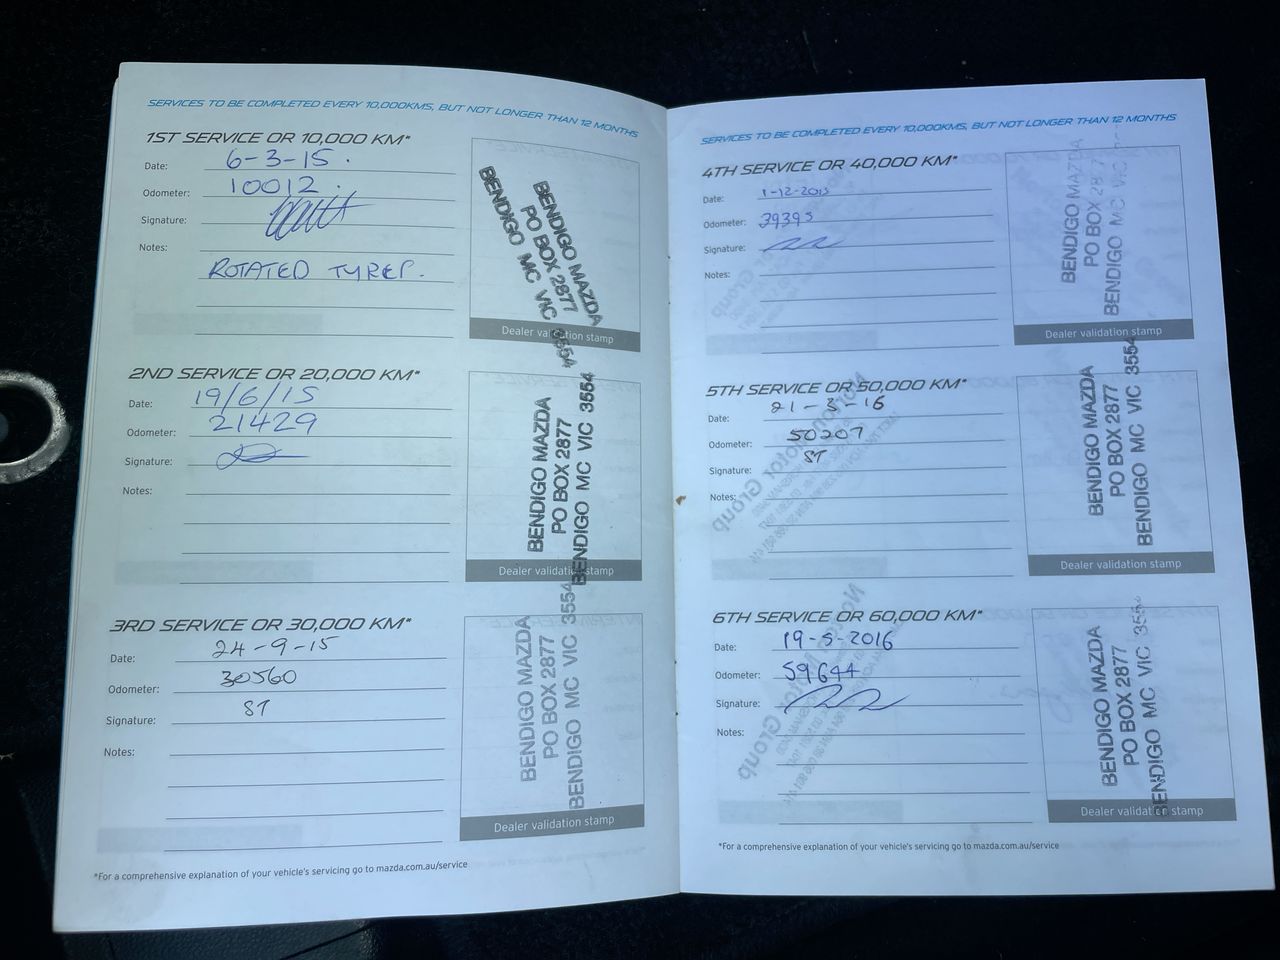 SERVICES TO BE COMPLETED EVERY 10,000KMS, BUT NOT LONGER THAN 12 MONTHS
1ST SERVICE OR 10,000 KM*
Date: 6-3-15.
Odometer: 10012.
Signature:
Notes:
ROTATED TYRES.
BENDIGO MAZDA
PO BOX 2877
BENDIGO MC VIC 3554
Dealer validation stamp
2ND SERVICE OR 20,000 KM*
Date: 19/6/15
Odometer: 21429
Signature:
Notes:
BENDIGO MAZDA
PO BOX 2877
BENDIGO MC VIC 3554
Dealer validation stamp
3RD SERVICE OR 30,000 KM*
Date: 24-9-15
Odometer: 30560
Signature: ST
Notes:
BENDIGO MAZDA
PO BOX 2877
BENDIGO MC VIC 3554
Dealer validation stamp
*For a comprehensive explanation of your vehicle's servicing go to mazda.com.au/service
SERVICES TO BE COMPLETED EVERY 10,000KMS, BUT NOT LONGER THAN 12 MONTHS
4TH SERVICE OR 40,000 KM*
Date: 1-12-2015
Odometer: 39395
Signature:
Notes:
BENDIGO MAZDA
PO BOX 2877
BENDIGO MC VIC
Dealer validation stamp
5TH SERVICE OR 50,000 KM*
Date: 21-3-16
Odometer: 50207
Signature: ST
Notes:
BENDIGO MAZDA
PO BOX 2877
BENDIGO MC VIC 3554
Dealer validation stamp
6TH SERVICE OR 60,000 KM*
Date: 19-5-2016
Odometer: 59644
Signature:
Notes:
BENDIGO MAZDA
PO BOX 2877
BENDIGO MC VIC 3554
Dealer validation stamp
*For a comprehensive explanation of your vehicle's servicing go to mazda.com.au/service